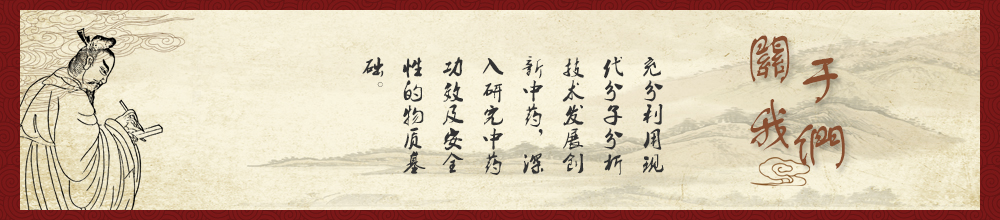 關于
我們
充分利用现
代分子分析
技术发展创
新中药，深
入研究中药
功效及安全
性的物质基
础。